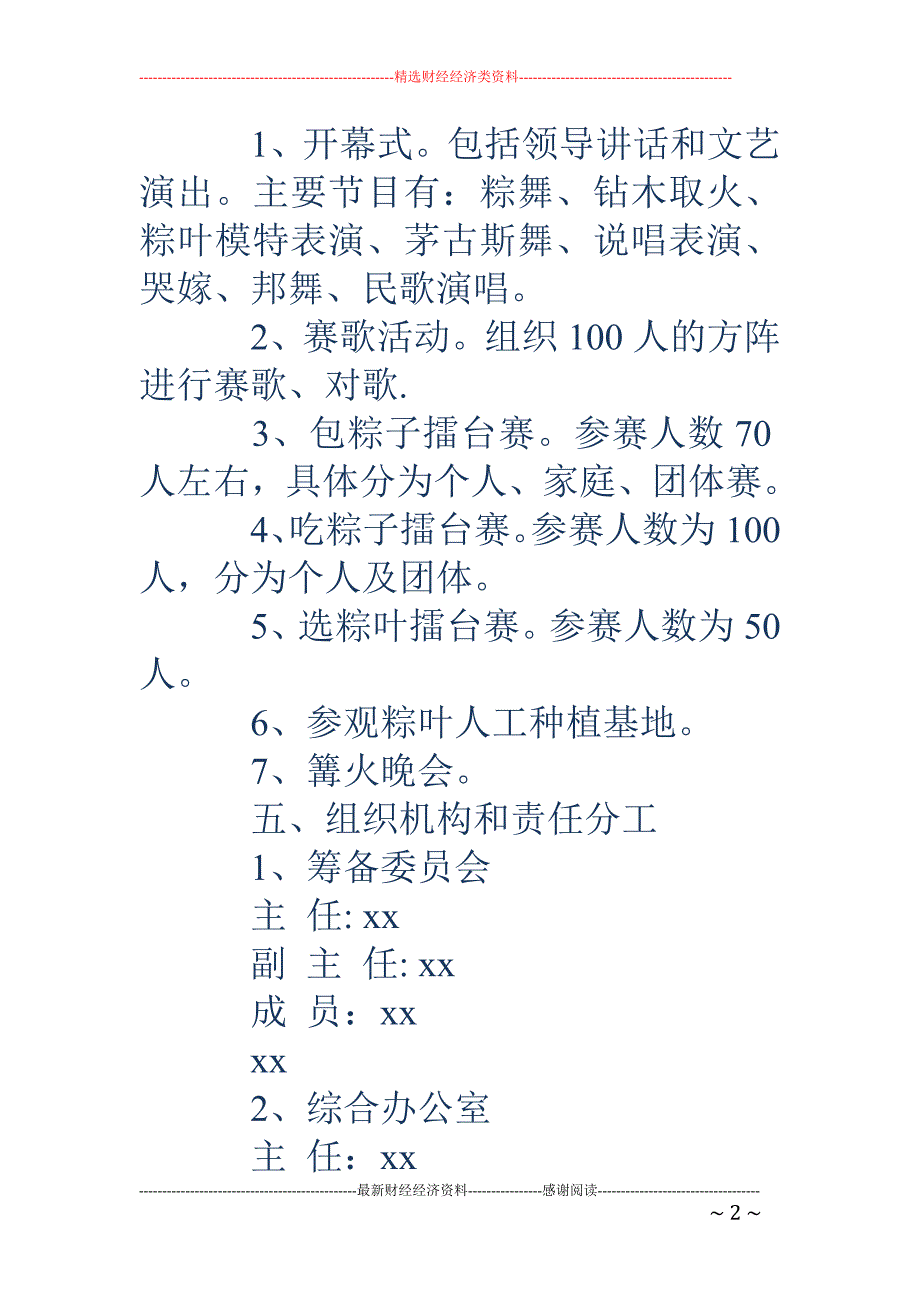 --------------------------------------------------------精选财经经济类资料----------------------------------------------
1、开幕式。包括领导讲话和文艺
演出。主要节目有：粽舞、钻木取火、
粽叶模特表演、茅古斯舞、说唱表演、
哭嫁、邦舞、民歌演唱。
2、赛歌活动。组织 100 人的方阵
进行赛歌、对歌.
3、包粽子擂台赛。参赛人数 70
人左右，具体分为个人、家庭、团体赛。
4、吃粽子擂台赛。参赛人数为 100
人，分为个人及团体。
5、选粽叶擂台赛。参赛人数为 50
人。
6、参观粽叶人工种植基地。
7、篝火晚会。
五、组织机构和责任分工
1、筹备委员会
主 任: xx
副 主 任: xx
成 员：xx
xx
2、综合办公室
主 任：xx
-----------------------------------------------最新财经经济资料----------------感谢阅读-----------------------------------
~ 2 ~